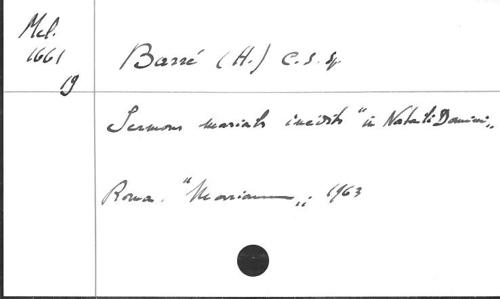 Mel.
1661
19
Barré (H.) C.S.Sp
Sermons marials inédits "in Natali Domini„
Roma. "Marianum„, 1963